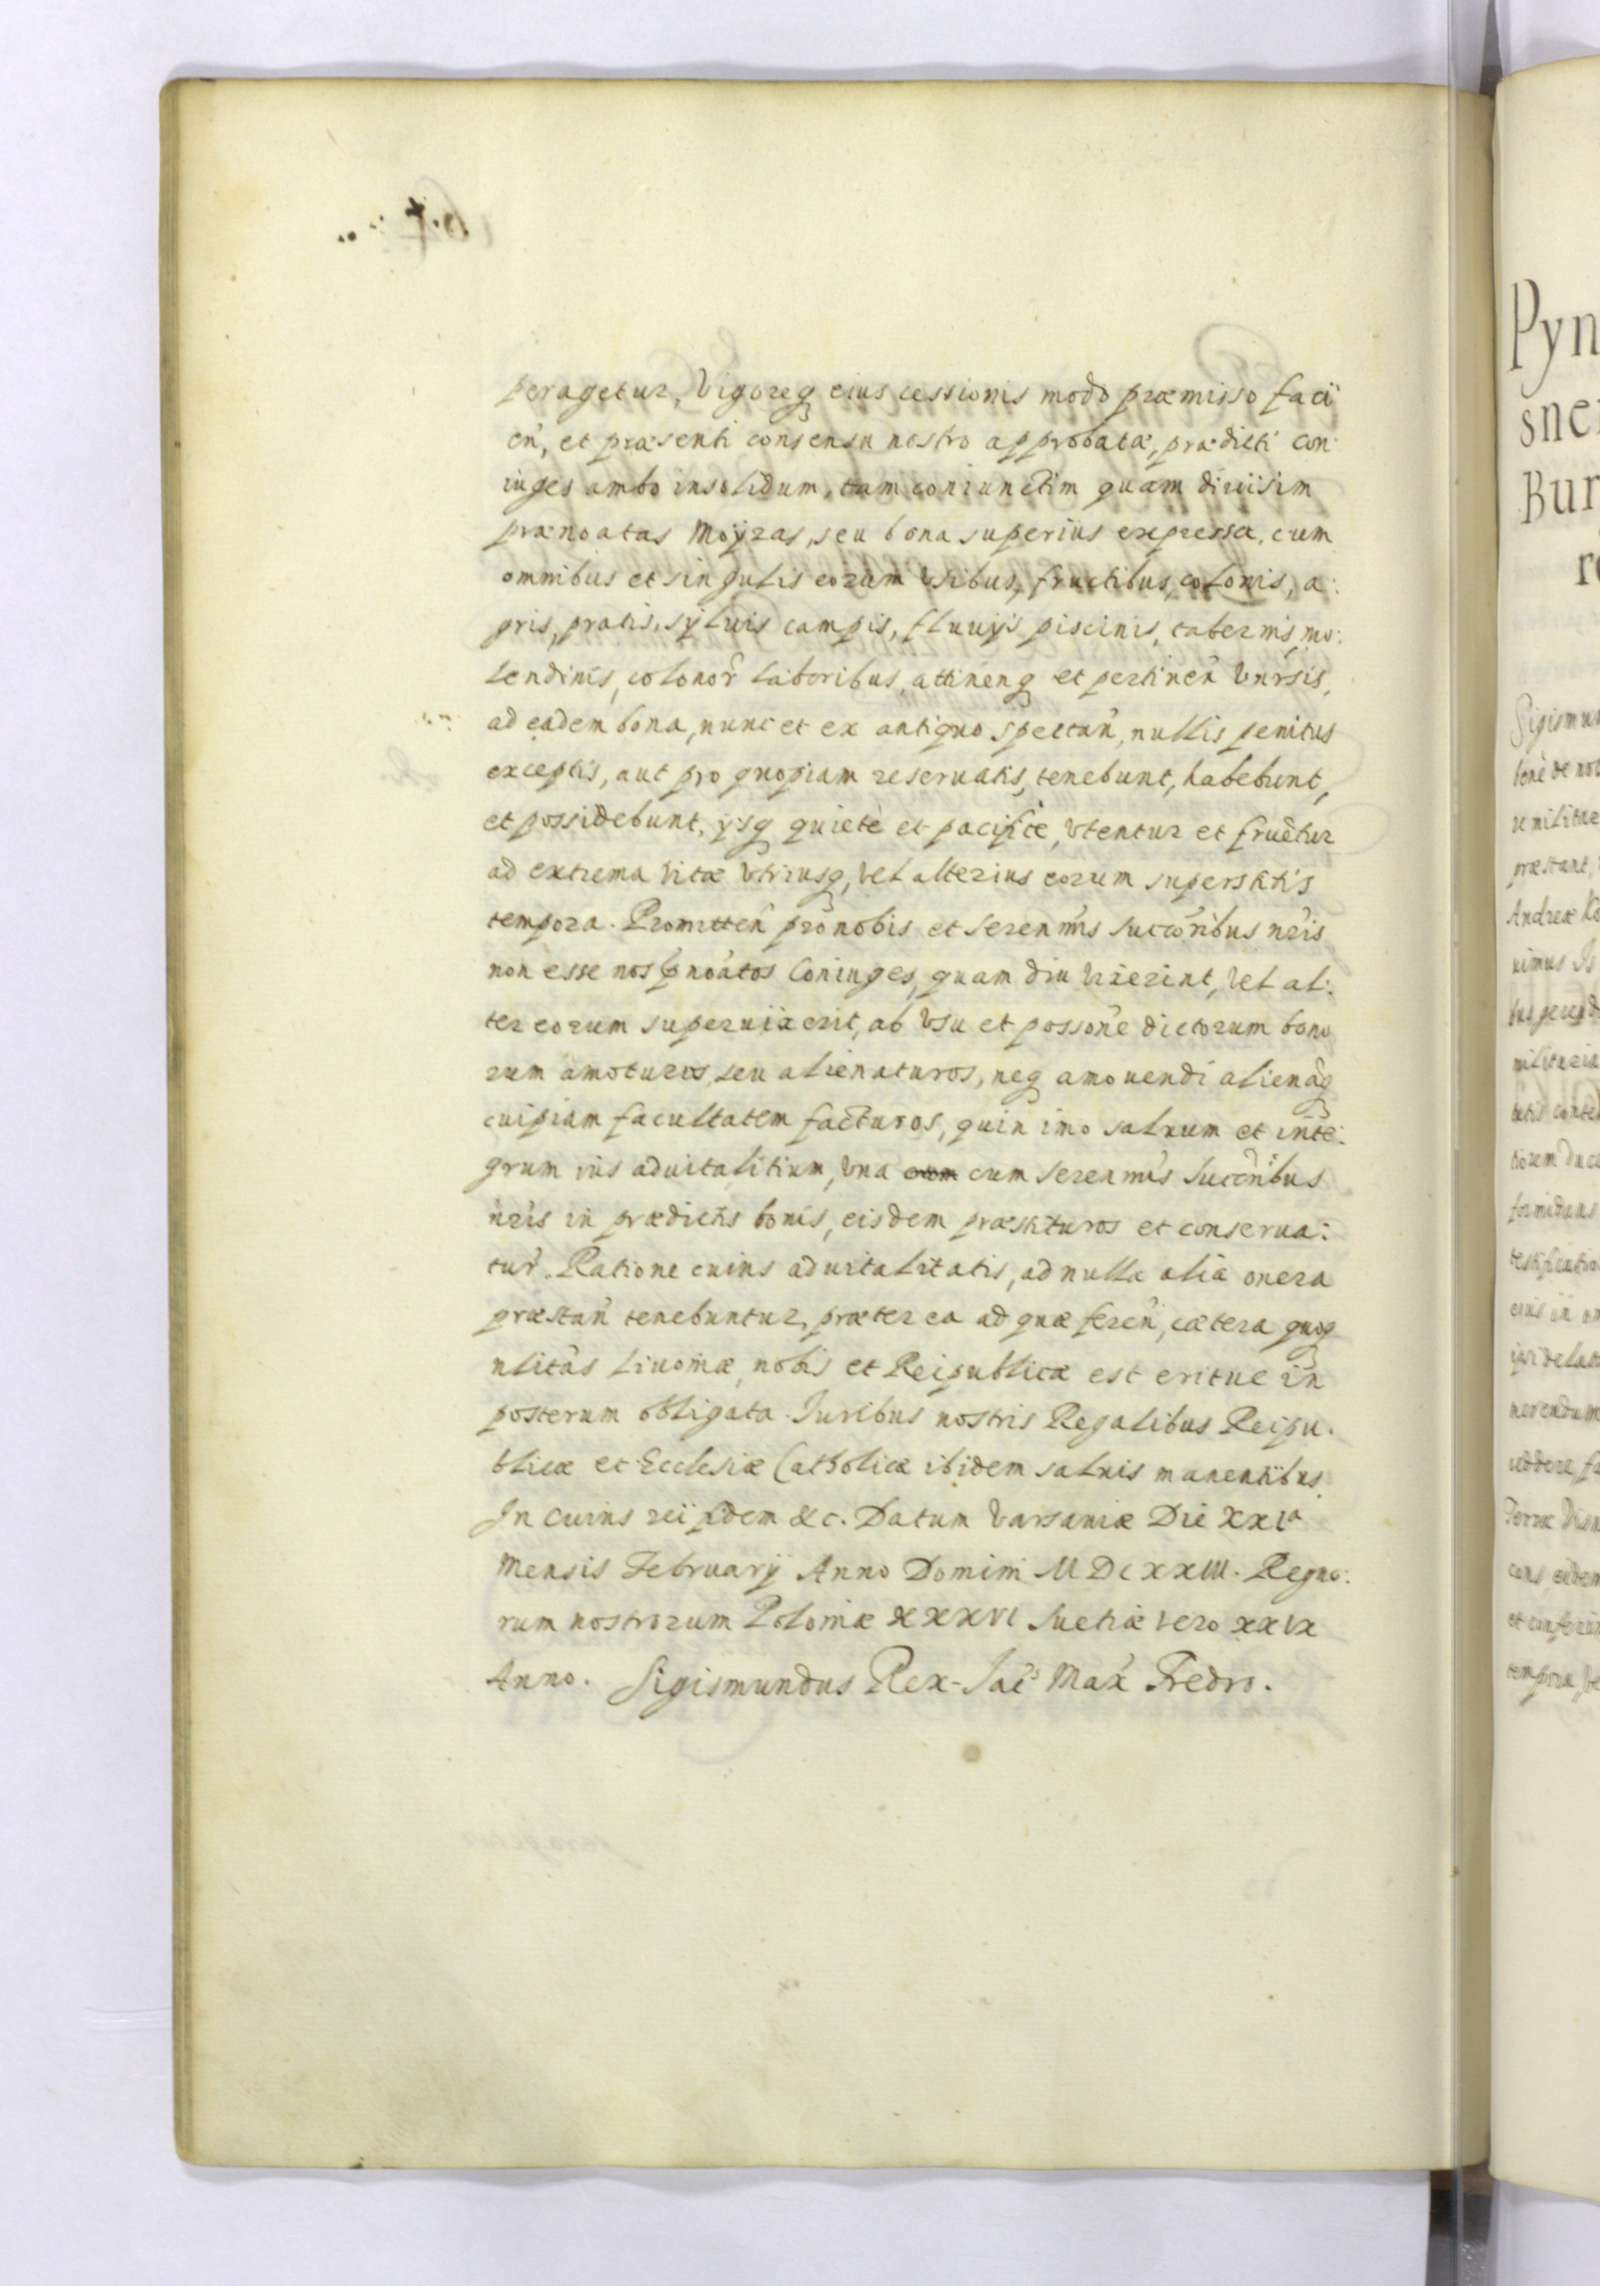 peragetur, Vigoreq eius cessionis modo præmisso faci
en, et præsenti consensu nostro approbatæ, prædicti con
iuges ambo insolidum, tam coniunctim quam diuisim
prænoatas Moyzas, seu bona superius expressa, cum
omnibus et singulis eorum Vsibus, fructibus, colonis, a:
gris, pratis, syluis campis, fluuÿs piscinis, tabernis, mo:
lendinis, colonor laboribus, attinenq et pertinen Vnrsis,
ad eadem bona, nunc et ex antiquo spectan, nullis penitus
exceptis, aut pro quopiam reseruatis, tenebunt, habebunt,
et possidebunt, ÿsq quietè et pacificè, Vtentur et fruêtur
ad extrema Vitæ Vtriusq, Vel alterius eorum superstitis
tempora. Promitten pro nobis et serenmis succoribus nris
non esse nos pnoatos Coniuges, quam diu Vixerint, Vel al:
ter eorum superuixerit, ab Vsu et possone dictorum bono
rum amoturos, seu alienaturos, neq amouendi alienâq
cuipiam facultatem facturos, quin imo saluum et inte:
grum ius aduitalitium, Vna cum cum serenmis succoribus
nris in prædictis bonis, eisdem præstituros et conserua:
tur. Ratione cuius aduitalitatis, ad nulla alia onera
præstan tenebuntur, præter ea ad quæ feren, cætera quoq
nlitas Liuoniæ, nobis et Reipublicæ est eritue in
posterum obligata. Iuribus nostris Regalibus Reipu.
blicæ et Ecclesiæ Catholicæ ibidem saluis manentibus.
In cuius rei fidem &c. Datum Varsauiæ Die XXIa
Mensis Februarÿ Anno Domini MDCXXIII. Regno:
rum nostrorum Poloniæ XXXVI Suetiæ vero XXIX
Anno. Sigismundus Rex - Iac Max Fredro.
Pyn
sne
Bur
Sigismu
benè de
præstant,
Andreæ Ko
tempora,